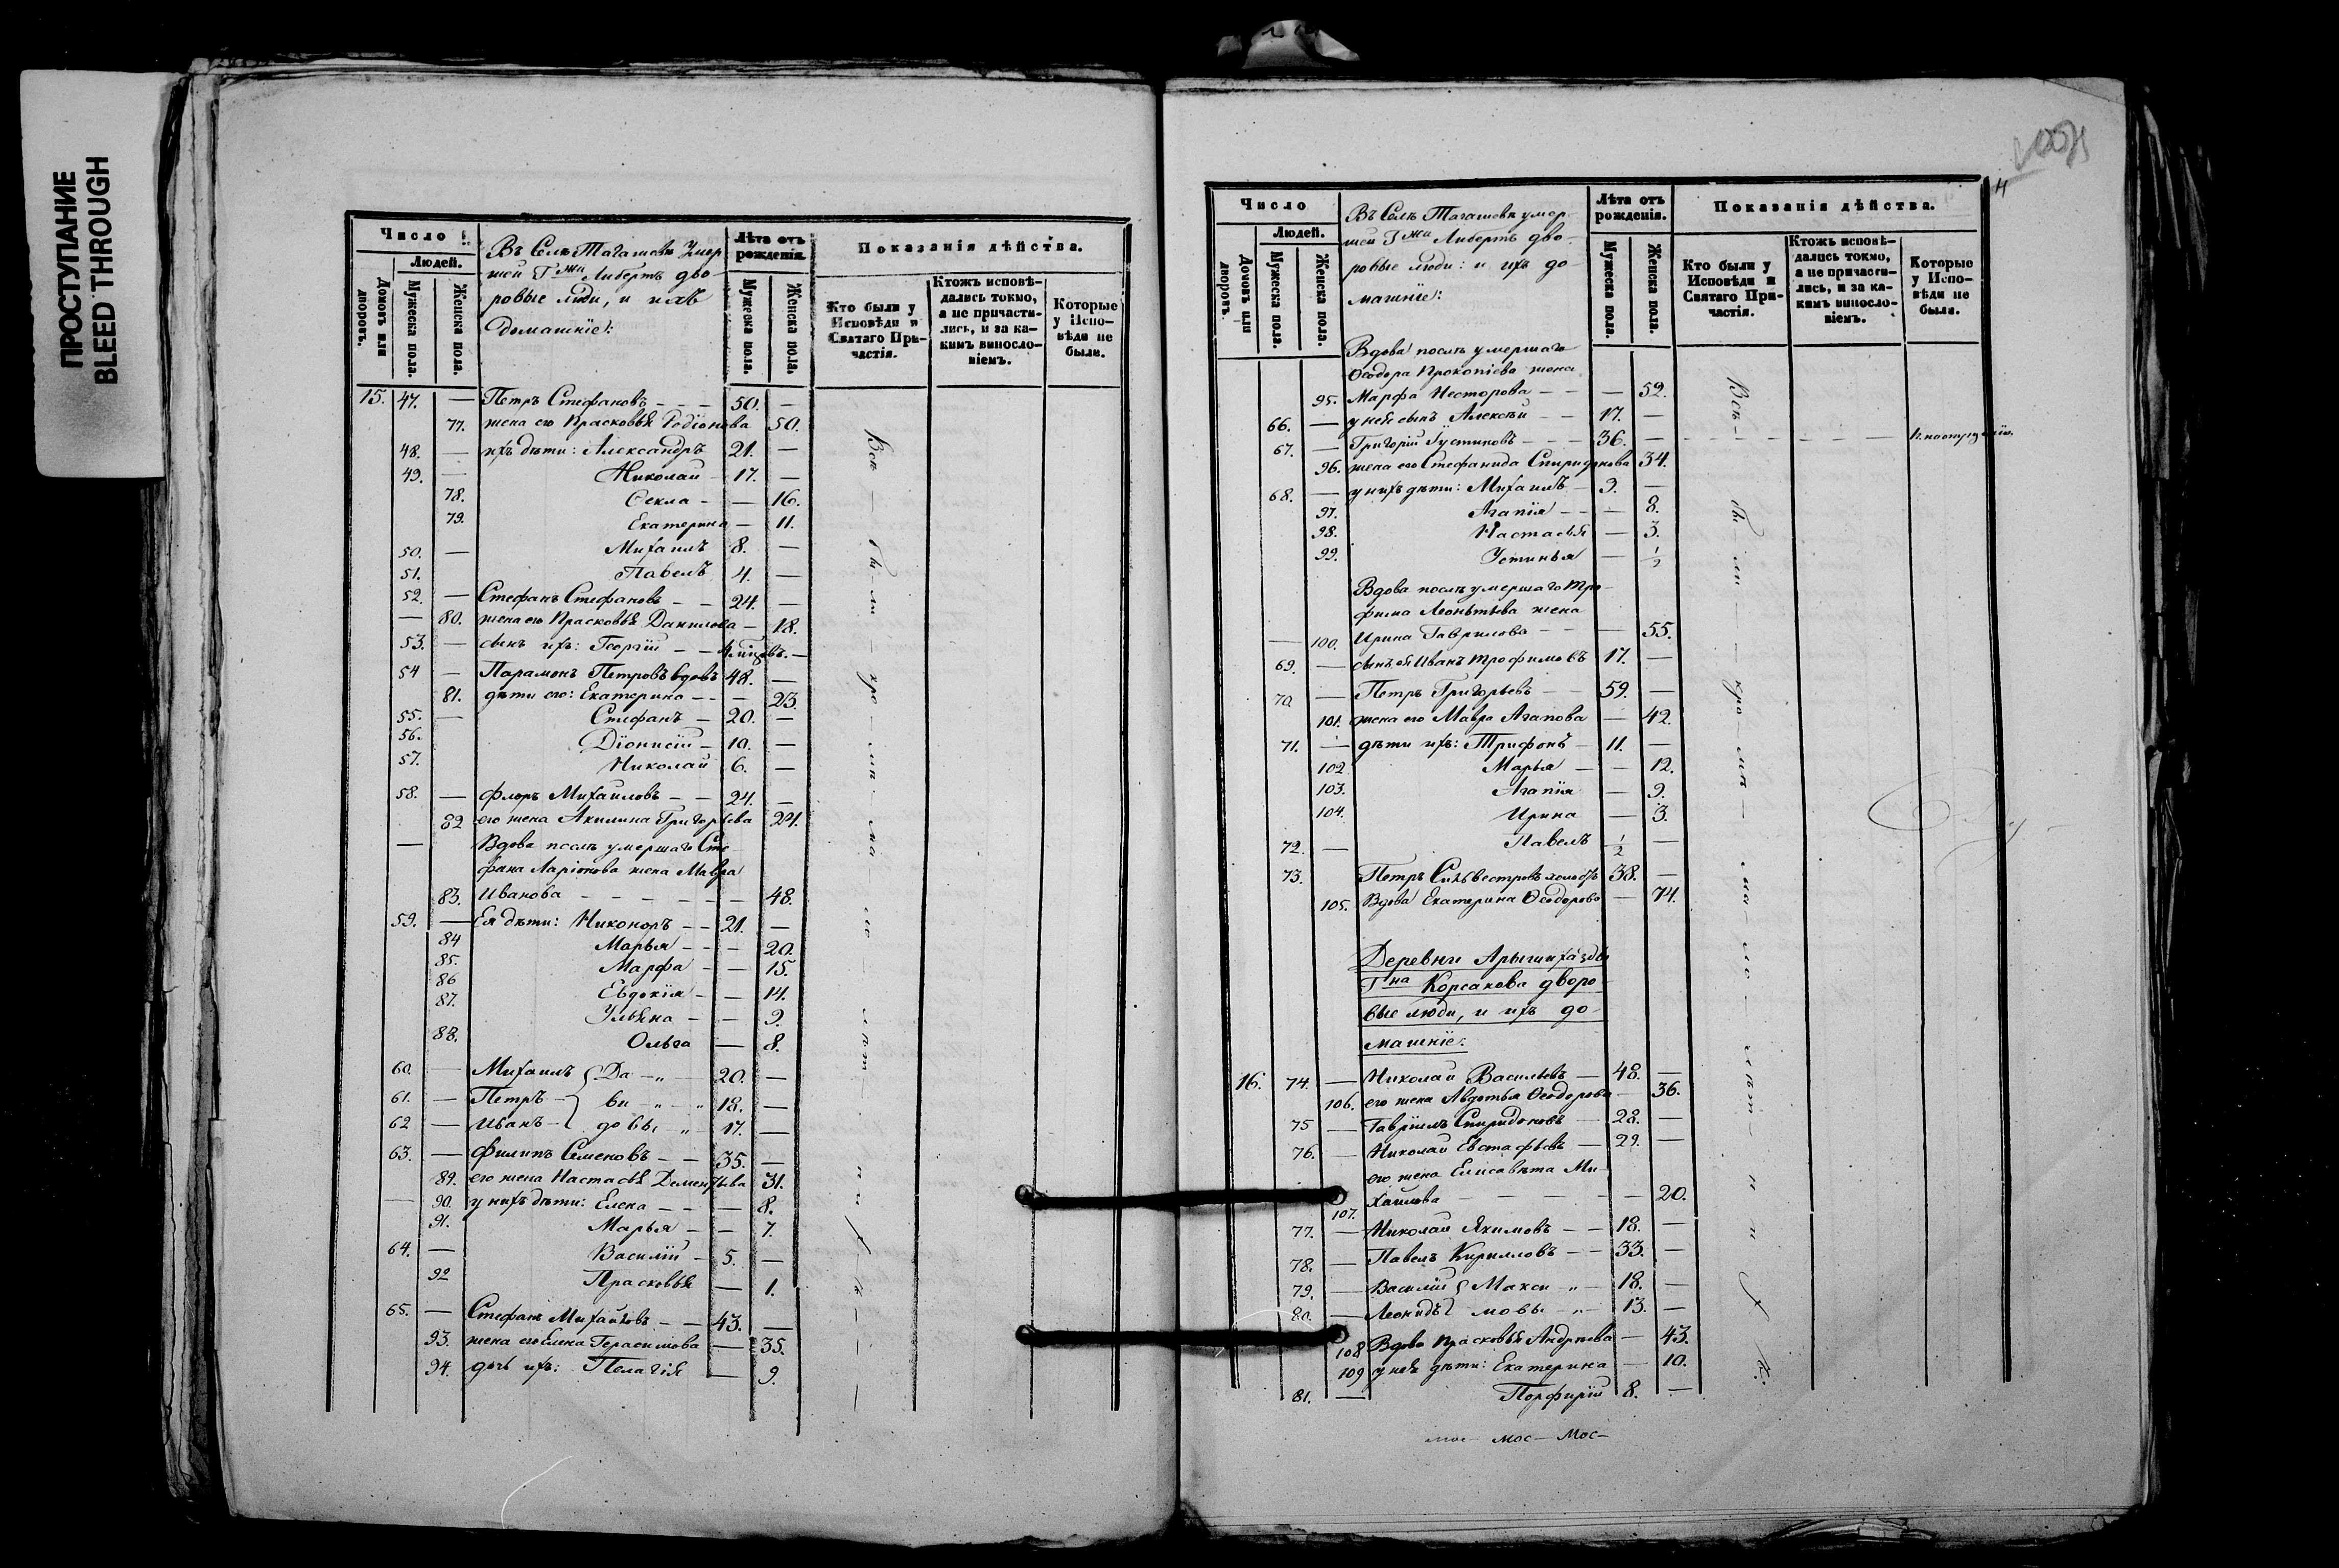 ПРОСТУПАНИЕ
BLEED THROUGH
Число
Людей.
Домовъ или дворовъ.
Мужеска пола.
Женска пола.
Въ Селѣ Тагашевѣ Умер
шей Гжи Либертъ дво
ровые люди, и ихъ
Домашніе:
Лѣта отъ рожденія.
Мужеска пола.
Женска пола.
Показанія дѣйства.
Кто были у Исповѣди и Святаго Причастія.
Ктожъ исповѣдались токмо, а не причастились, и за какимъ винословіемъ.
Которые у Исповѣди не были.
15. 47. — Петръ Стефановъ — — — 50. —
77. жена его Прасковья Родіонова 50.
48. — ихъ дѣти: Александръ 21. —
49. — Николай — 17. —
78. Ѳекла — — 16.
79. Екатерина — 11.
50. — Михаилъ 8. —
51. Павелъ 4. —
52. — Стефанъ Стефановъ — — 24. —
— 80. жена его Прасковья Данилова — 18.
53. — сынъ ихъ: Георгій — —
54 — Парамонъ Петровъ вдовъ 48. —
81. дѣти его: Екатерина — — — 23.
55. — Стефанъ — 20. —
56. Діонисій — 10. —
57. Николай 6. —
58. — Флоръ Михайловъ — — 24. —
82 его жена Акилина Григорьева 24.
— Вдова послѣ умершаго Сте
фана Ларіонова жена Мавра
83. Иванова — — — — — — 48.
59. — Ея дѣти: Никоноръ — — 21. —
84 Марья — — — 20.
85. Марфа — — 15.
86 Евдокія — — 14.
87. Ульяна — — 9.
88. Ольга — 8.
60. — Михаилъ Да — „ 20. —
61. — Петръ — ви — „ — „ 18. —
62 — Иванъ — довы „ 17. —
63. — Филипъ Семеновъ — — 35. —
89. его жена Настасья Дементьева 31.
— 90. у нихъ дѣти: Елена — — — 8.
91. Марья — — 7.
64. — Василій — 5. —
92 Прасковья — 1.
65. — Стефанъ Михайловъ — — 43. —
93. жена его Елена Герасимова — 35.
94. дочь ихъ: Пелагія — 9.
Всѣ — бы — ли —
Число
Людей.
Домовъ или дворовъ.
Мужеска пола.
Женска пола.
Въ Селѣ Тагашевѣ умер
шей Гжи Либертъ дво
ровые люди: и ихъ до
машніе:
Лѣта отъ рожденія.
Мужеска пола.
Женска пола.
Показанія дѣйства.
Кто были у Исповѣди и Святаго Причастія.
Ктожъ исповѣдались токмо, а не причастились, и за какимъ винословіемъ.
Которые у Исповѣди не были.
4
Вдова послѣ умершаго
Ѳеодора Прокопіева жена
95. Марфа Несторова — — — 52.
66. — у нея сынъ Алексѣй — — 17. —
67. — Григорій Іустиновъ — — — 36. —
96. жена его Стефанида Спиридонова 34.
68. — у нихъ дѣти: Михаилъ — 9. —
97. Агапія — — — 8.
98. Настасья — 3.
99. Устинья — ½
Вдова послѣ умершаго Тро
фима Леонтьева жена
— 100. Ирина Гаврилова — — — 55.
69. — сынъ ея Иванъ Трофимовъ 17. —
70 — Петръ Григорьевъ — — 59. —
101. жена его Мавра Агапова — 42.
71. — дѣти ихъ: Трифонъ — 11. —
102 Марья — — 12.
103. Агапія — 9.
104. Ирина — 3.
72. — Павелъ ½ —
73. Петръ Сильвестровъ холостъ 38. —
105. Вдова Екатерина Ѳеодорова — 74.
Г на Корсакова дворо
вые люди, и ихъ до
машніе:
16. 74. — Николай Васильевъ — 48. —
106. его жена Авдотья Ѳеодорова — 36.
75 — Гавріилъ Спиридоновъ — 28. —
76. — Николай Евстафьевъ — 29. —
его жена Елисавета Ми
107. хайлова — — — — — — 20.
77. — Николай Якимовъ — — 18. —
78. — Павелъ Кирилловъ — — 33. —
79. — Василій Макси „ — 18. —
80. — Леонидъ мовы — „ — 13. —
108 Вдова Прасковья Андреева — 43.
109 у нея дѣти: Екатерина — 10.
81. — Порфирій 8. —
Всѣ — бы — ли —
мос — мос — мос —